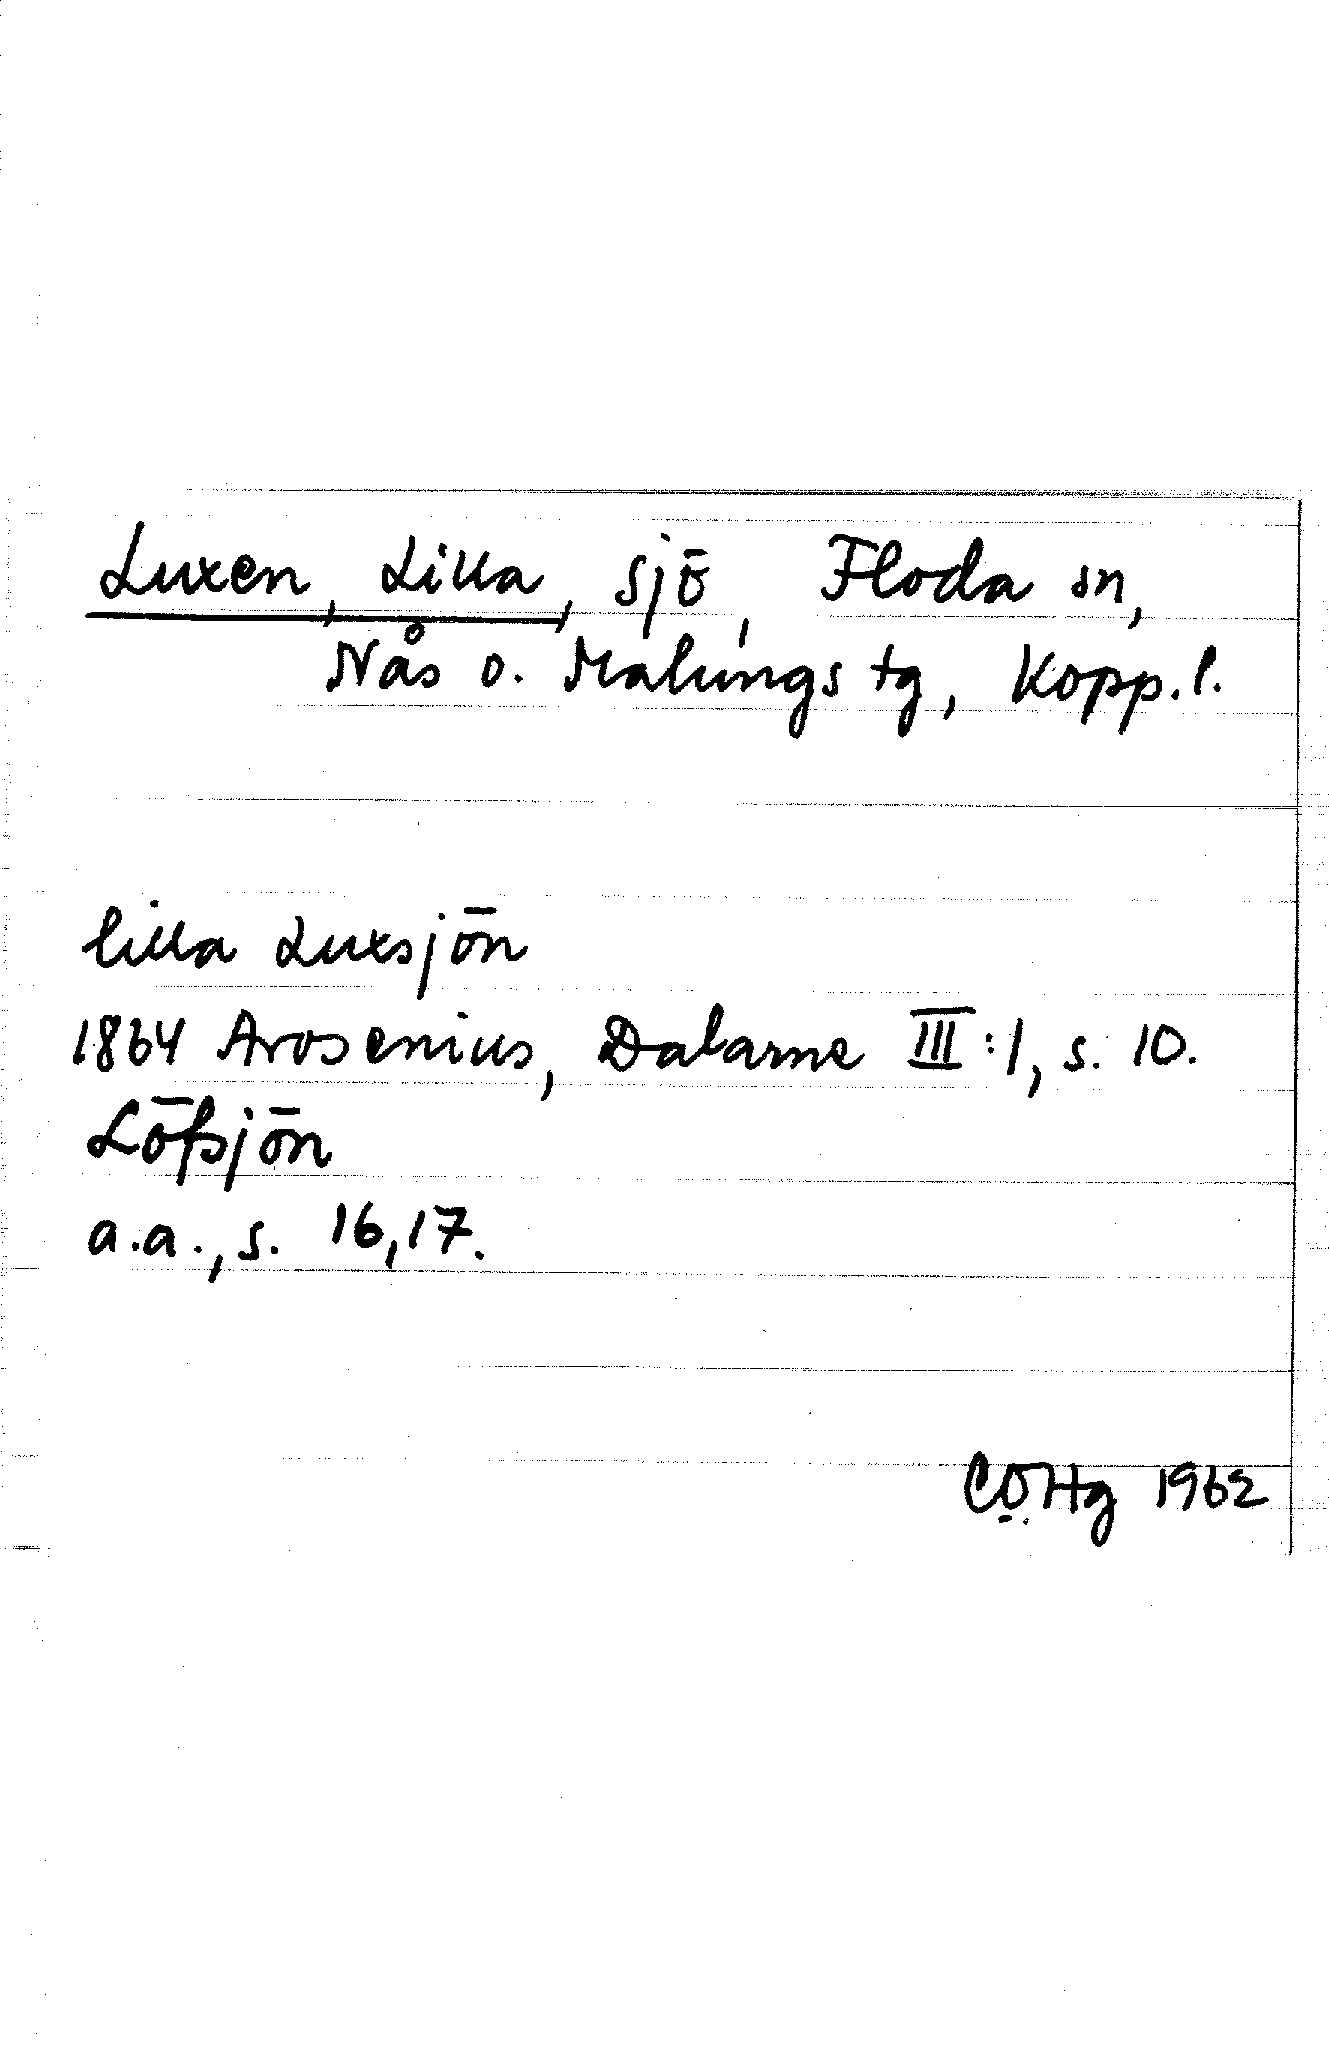 Luxen, Lilla, sjö, Floda sn,
Nås o. Malungs tg, Kopp. l.
lilla Luxsjön
1864 Arosenius, Dalarne III:1, s. 10.
Löfsjön
a.a., s. 16,17.
CÖHg 1962